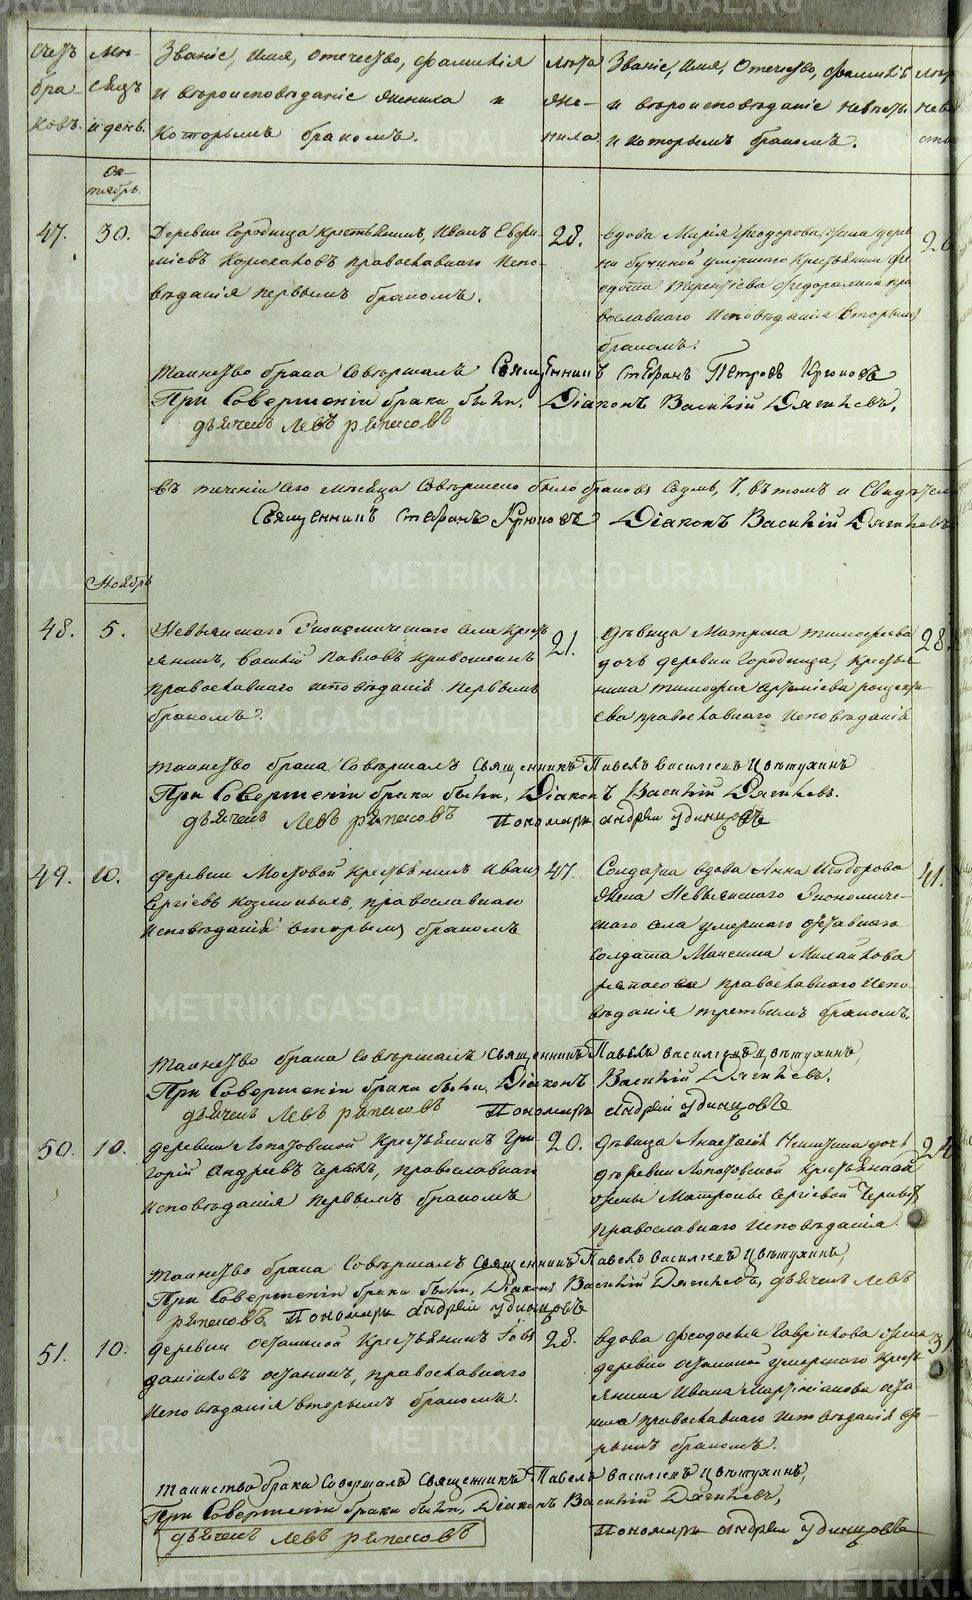 Счетъ браковъ.
Мѣсяцъ и день.
Званіе, Имя, Отечество, фамилія
и вѣроисповѣданіе жениха и
которымъ бракомъ.
Лѣта жениха
Званіе, Имя, Отечество, фамилія
и вѣроисповѣданіе невѣсты
и которымъ бракомъ.
Октябрь.
47.
30.
Деревни Городища крестьянинъ, Иванъ
православнаго Испо-
вѣданія первымъ бракомъ.
28.
вдова Марія Ѳеодорова, жена дере
вни умершаго крестьянина
пра
вославнаго Исповѣданія вторымъ
бракомъ.
Таинство брака Совершалъ Священникъ Стефанъ Петровъ Крюковъ
При Совершеніи брака были, Діаконъ Василій Дягилевъ,
дьячекъ Левъ рѣпасовъ
въ теченіи сего мѣсяца Совершено было браковъ Седмь, 7, въ томъ и Свидѣтел
Священникъ Стефанъ Крюковъ Діаконъ Василій Дягилевъ
Ноябрь
48.
5.
Невьянскаго Экономическаго села крест
янинъ, Василій Павловъ Кривошеинъ
православнаго исповѣданій первымъ
бракомъ.
21.
дѣвица Матрона тимофеева
дочь деревни Городища, крестья
нина тимофея Артеміева
ва православнаго Исповѣданія
28.
таинство брака Совершалъ Священникъ Павелъ Василіевъ Цвѣтухинъ
При Совершеніи брака были, Діаконъ Василій Дягилевъ.
дьячекъ Левъ рѣпасовъ Пономарь Андрей удинцовъ
49.
10.
деревни Мостовой крестьянинъ Иванъ
Сергіевъ православнаго
исповѣданій вторымъ бракомъ
47.
Солдатка вдова Анна Исидорова
жена Невьянскаго Экономиче-
скаго села умершаго отставнаго
солдата Максима Михайлова
рѣпасова православнаго Испо-
вѣданія третьимъ бракомъ.
41.
таинство брака Совершалъ Священникъ Павелъ Василіевъ Цвѣтухинъ,
При Совершеніи брака были, Діаконъ Василій Дягилевъ.
дьячекъ Левъ рѣпасовъ Пономарь Андрей удинцовъ
50.
10.
деревни Лопатовской крестьянинъ Гри
горій Андреевъ православнаго
исповѣданія первымъ бракомъ
20.
дѣвица Анастасія Никитина дочь
деревни Лопатовской крестьянской
жены Матроны Сергіевой
православнаго Исповѣданія.
таинство брака Совершалъ Священникъ Павелъ Василіевъ Цвѣтухинъ,
При Совершеніи брака были, Діаконъ Василій Дягилевъ, дьячекъ Левъ
рѣпасовъ Пономарь Андрей удинцовъ
51.
10.
деревни Останиной крестьянинъ Іовъ
Даніиловъ Останинъ, православнаго
Исповѣданія вторымъ бракомъ.
28.
вдова Ѳеодосья Гавріилова жена
деревни Останиной умершаго крест
янина Ивана Оста
нина православнаго Исповѣданія вто-
рымъ бракомъ.
таинство брака Совершалъ Священникъ Павелъ Василіевъ Цвѣтухинъ,
При Совершеніи брака были, Діаконъ Василій Дягилевъ,
дьячекъ Левъ рѣпасовъ Пономарь Андрей удинцовъ
METRIKI.GASO-URAL.RU